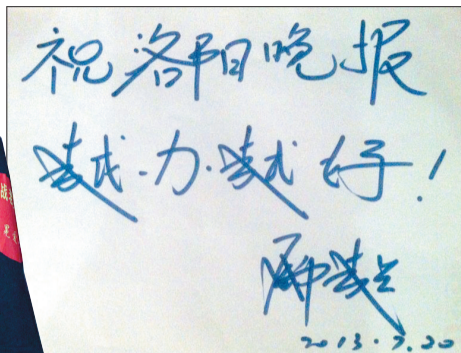 祝洛阳晚报
越办越好！
2013.7.20